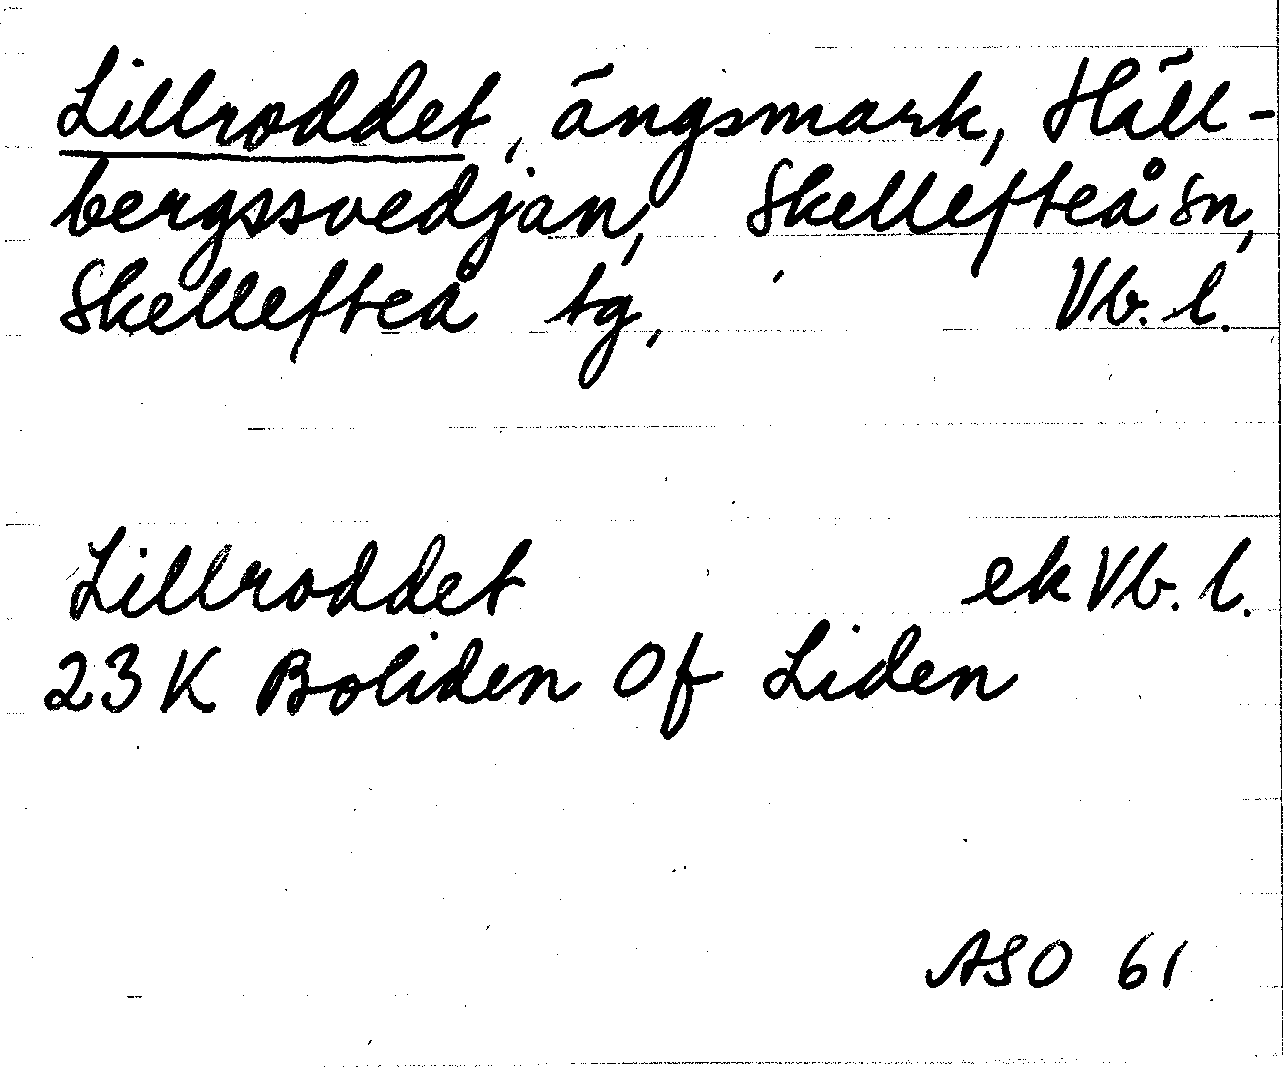 Lillroddet, ängsmark, Häll-
bergssvedjan, Skellefteå sn,
Skellefteå tg, Vb. l.
Lillroddet ek Vb. l.
23 K Boliden Of Liden
ASO 61